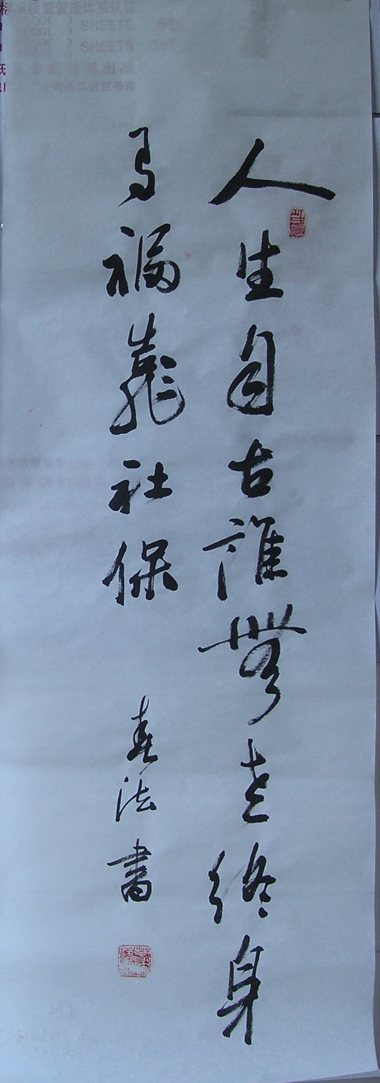 SHEETS
SHEETS
人生自古誰無老終身
有福靠社保
春法書